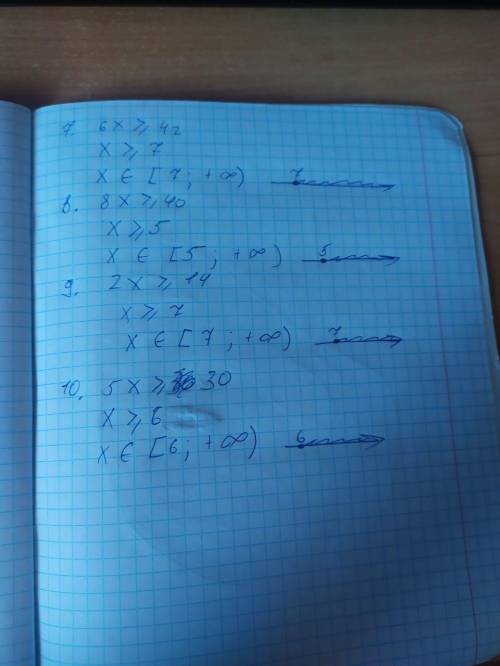 7. 6x ⩾ 42
x ⩾ 7
x ∈ [7; +∞) 7
8. 8x ⩾ 40
x ⩾ 5
x ∈ [5; +∞) 5
9. 2x ⩾ 14
x ⩾ 7
x ∈ [7; +∞) 7
10. 5x ⩾ 30
x ⩾ 6
x ∈ [6; +∞) 6